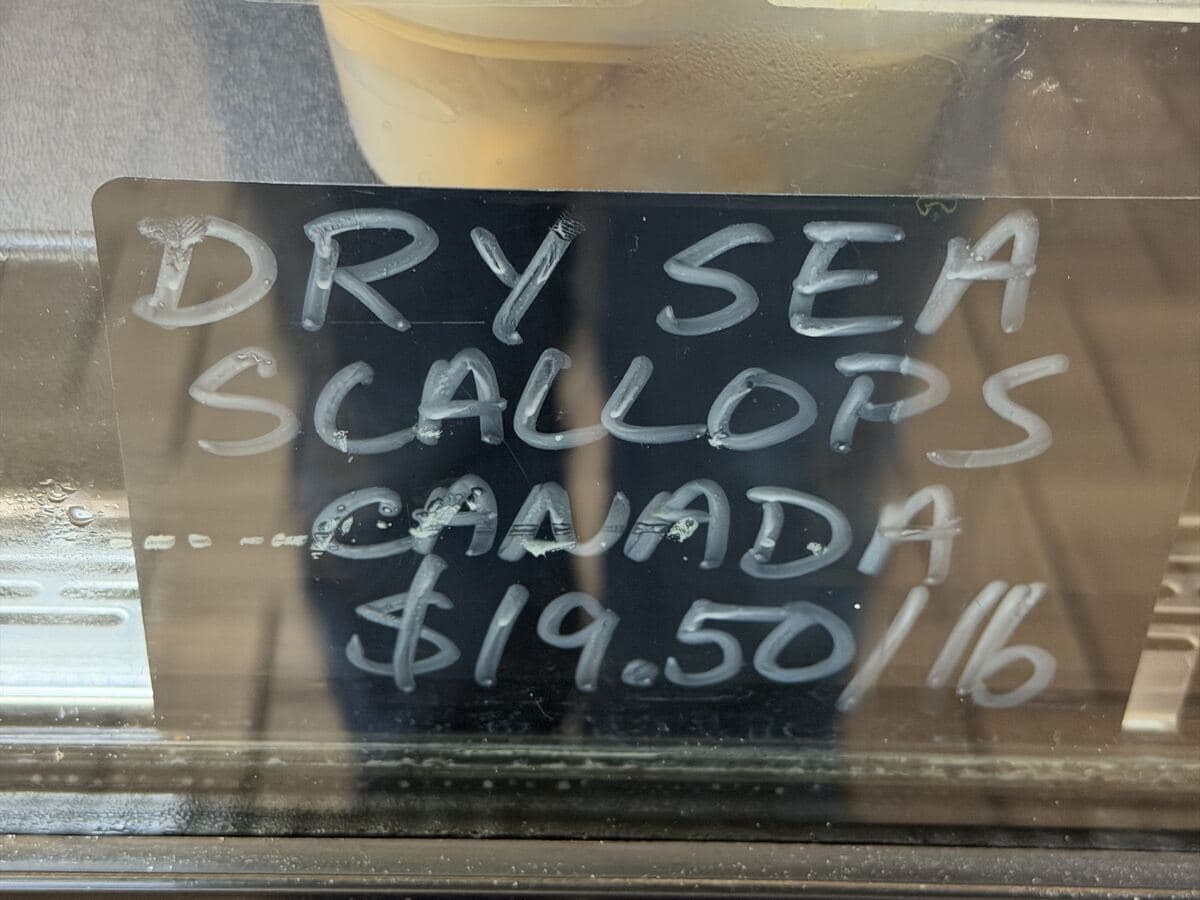 DRY SEA
SCALLOPS
CANADA
$19.50/lb